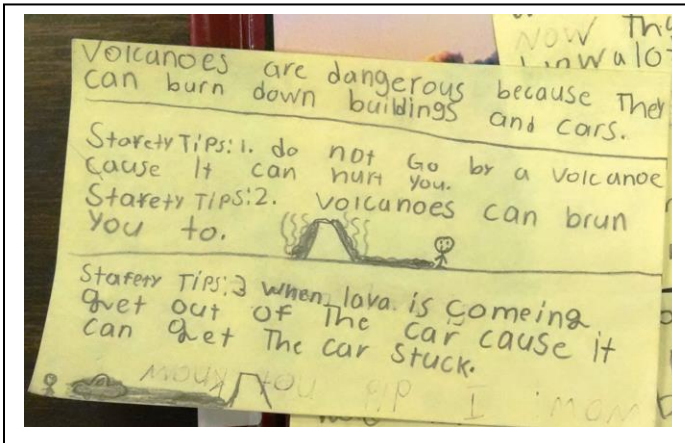 Volcanoes are dangerous because They
can burn down buildings and cars.
Starety Tips: 1. do not Go by a volcanoe
cause It can hurt you.
Starety Tips: 2. volcanoes can brun
you to.
Stafety Tips: 3 when lava is comeing
get out of The car cause it
can get The car stuck.
wow! I did not know
Now Thy